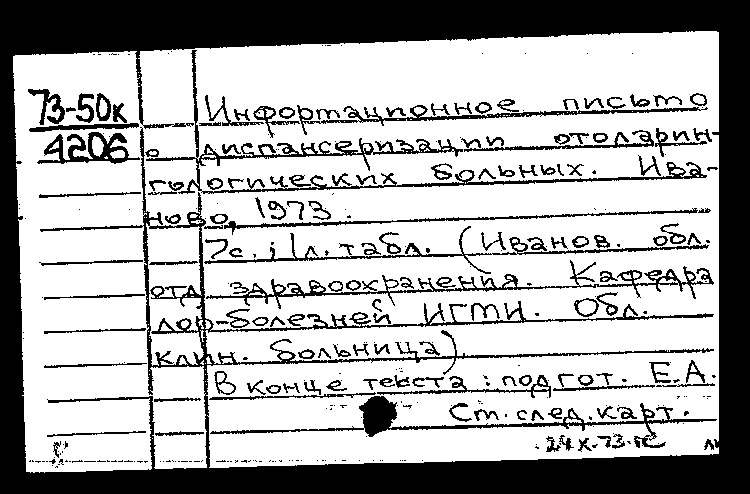 73-50к
4206
Информационное письмо
о диспансеризации отоларин-
гологических больных. Ива-
ново, 1973.
7с.; 1л. табл. (Иванов. обл.
отд. здравоохранения. Кафедра
лор-болезней ИГМИ. Обл.
клин. больница)
В конце текста: подгот. Е.А.
См. след. карт.